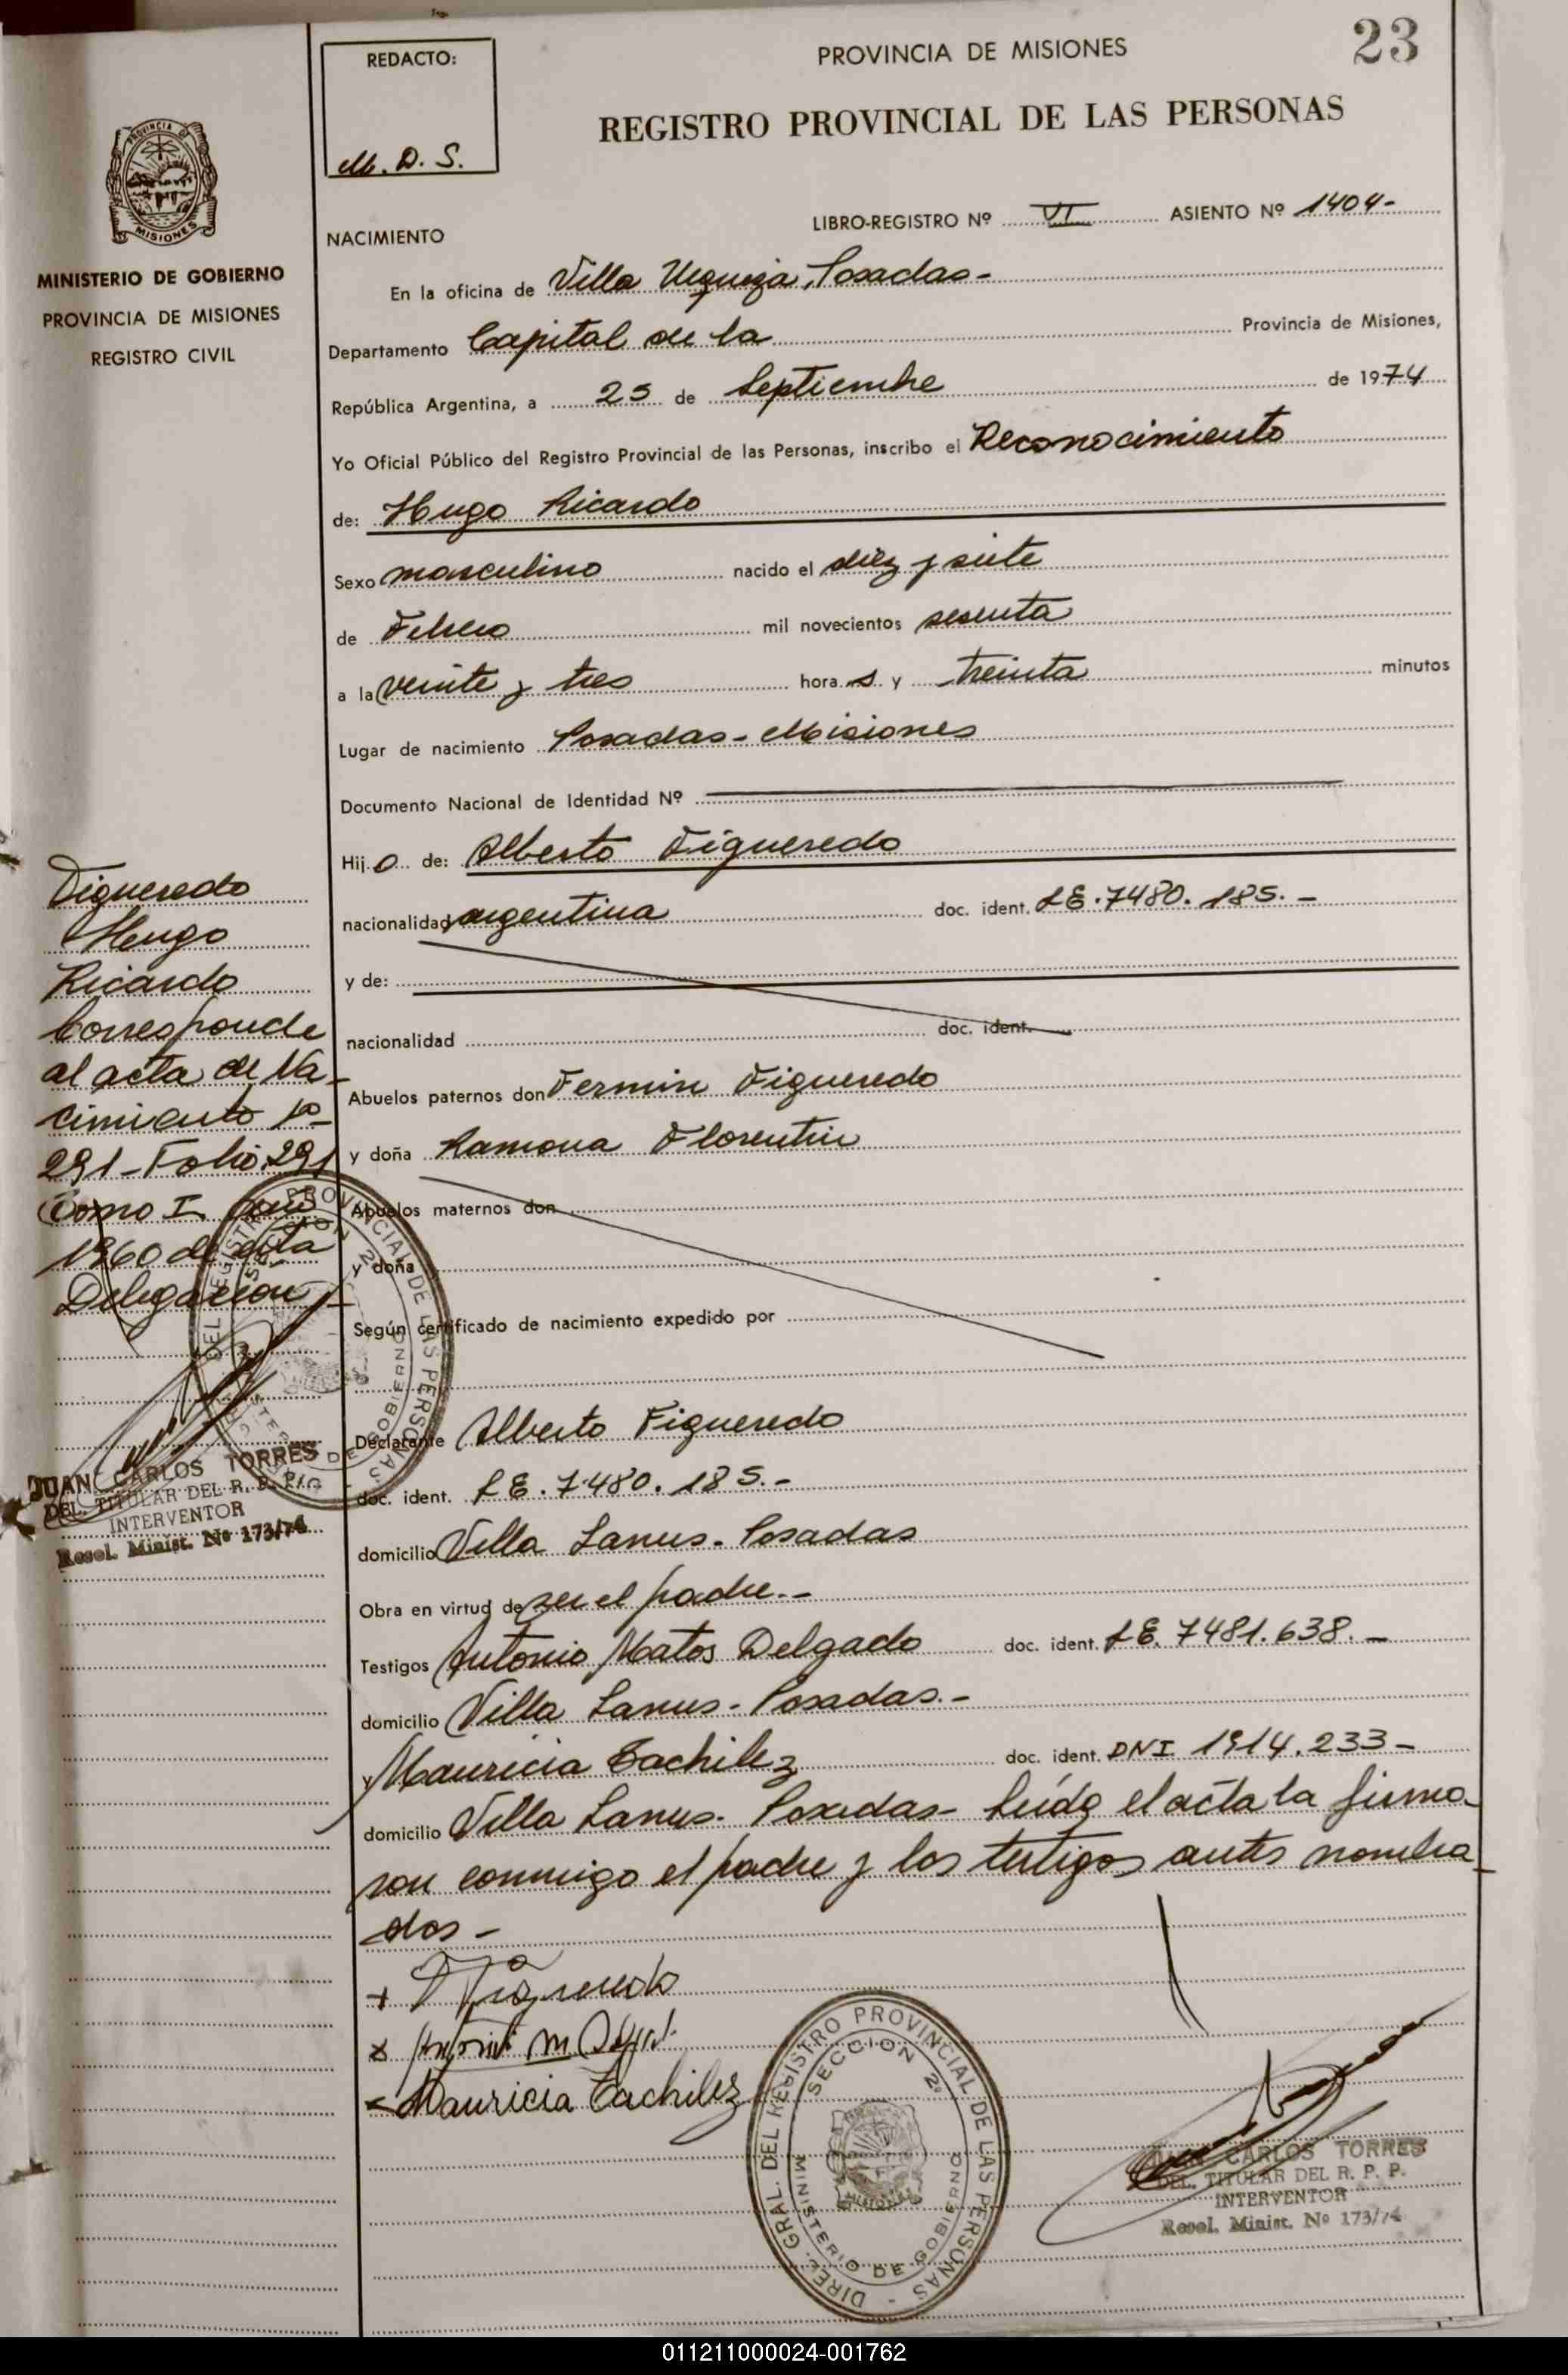 REDACTO:
M. D. S.
PROVINCIA DE MISIONES
23
REGISTRO PROVINCIAL DE LAS PERSONAS
MISIONES
MINISTERIO DE GOBIERNO
PROVINCIA DE MISIONES
REGISTRO CIVIL
LIBRO-REGISTRO Nº VI ASIENTO Nº 1404-
NACIMIENTO
En la oficina de Villa Urquiza, Posadas-
Departamento Capital de la Provincia de Misiones,
República Argentina, a 25 de Septiembre de 1974
Yo Oficial Público del Registro Provincial de las Personas, inscribo el Reconocimiento
de: Hugo Ricardo
Sexo masculino nacido el diez y siete
de Febrero mil novecientos sesenta
a la veinte y tres hora s y treinta minutos
Lugar de nacimiento Posadas - Misiones
Documento Nacional de Identidad Nº
Hij o de: Alberto Figueredo
nacionalidad argentina doc. ident. LE. 7480.185.-
y de:
nacionalidad doc. ident.
Abuelos paternos don Fermin Figueredo
y doña Ramona Florentin
Abuelos maternos don
y doña
Según certificado de nacimiento expedido por
Declarante Alberto Figueredo
doc. ident. LE. 7.480.185.-
domicilio Villa Lanus - Posadas
Obra en virtud de ser el padre.-
Testigos Antonio Matos Delgado doc. ident. LE. 7481.638.-
domicilio Villa Lanus - Posadas.-
y Mauricia Cachilez doc. ident. DNI 1914.233-
domicilio Villa Lanus - Posadas - Leída el acta la firma-
ron conmigo el padre y los testigos antes nombra-
dos -
Figueredo
Mauricia Cachilez
Figueredo
Hugo
Ricardo
Corresponde
al acta de Na-
cimiento nº
291 - Folio 291
Tomo I año
1960 de esta
Delegación
JUAN CARLOS TORRES
DEL. TITULAR DEL R. P. P.
INTERVENTOR
Resol. Minist. Nº 173/74
DIREC. GRAL. DEL REGISTRO PROVINCIAL DE LAS PERSONAS
SECCION 2ª
MINISTERIO DE GOBIERNO
MISIONES
JUAN CARLOS TORRES
DEL. TITULAR DEL R. P. P.
INTERVENTOR
Resol. Minist. Nº 173/74
011211000024-001762